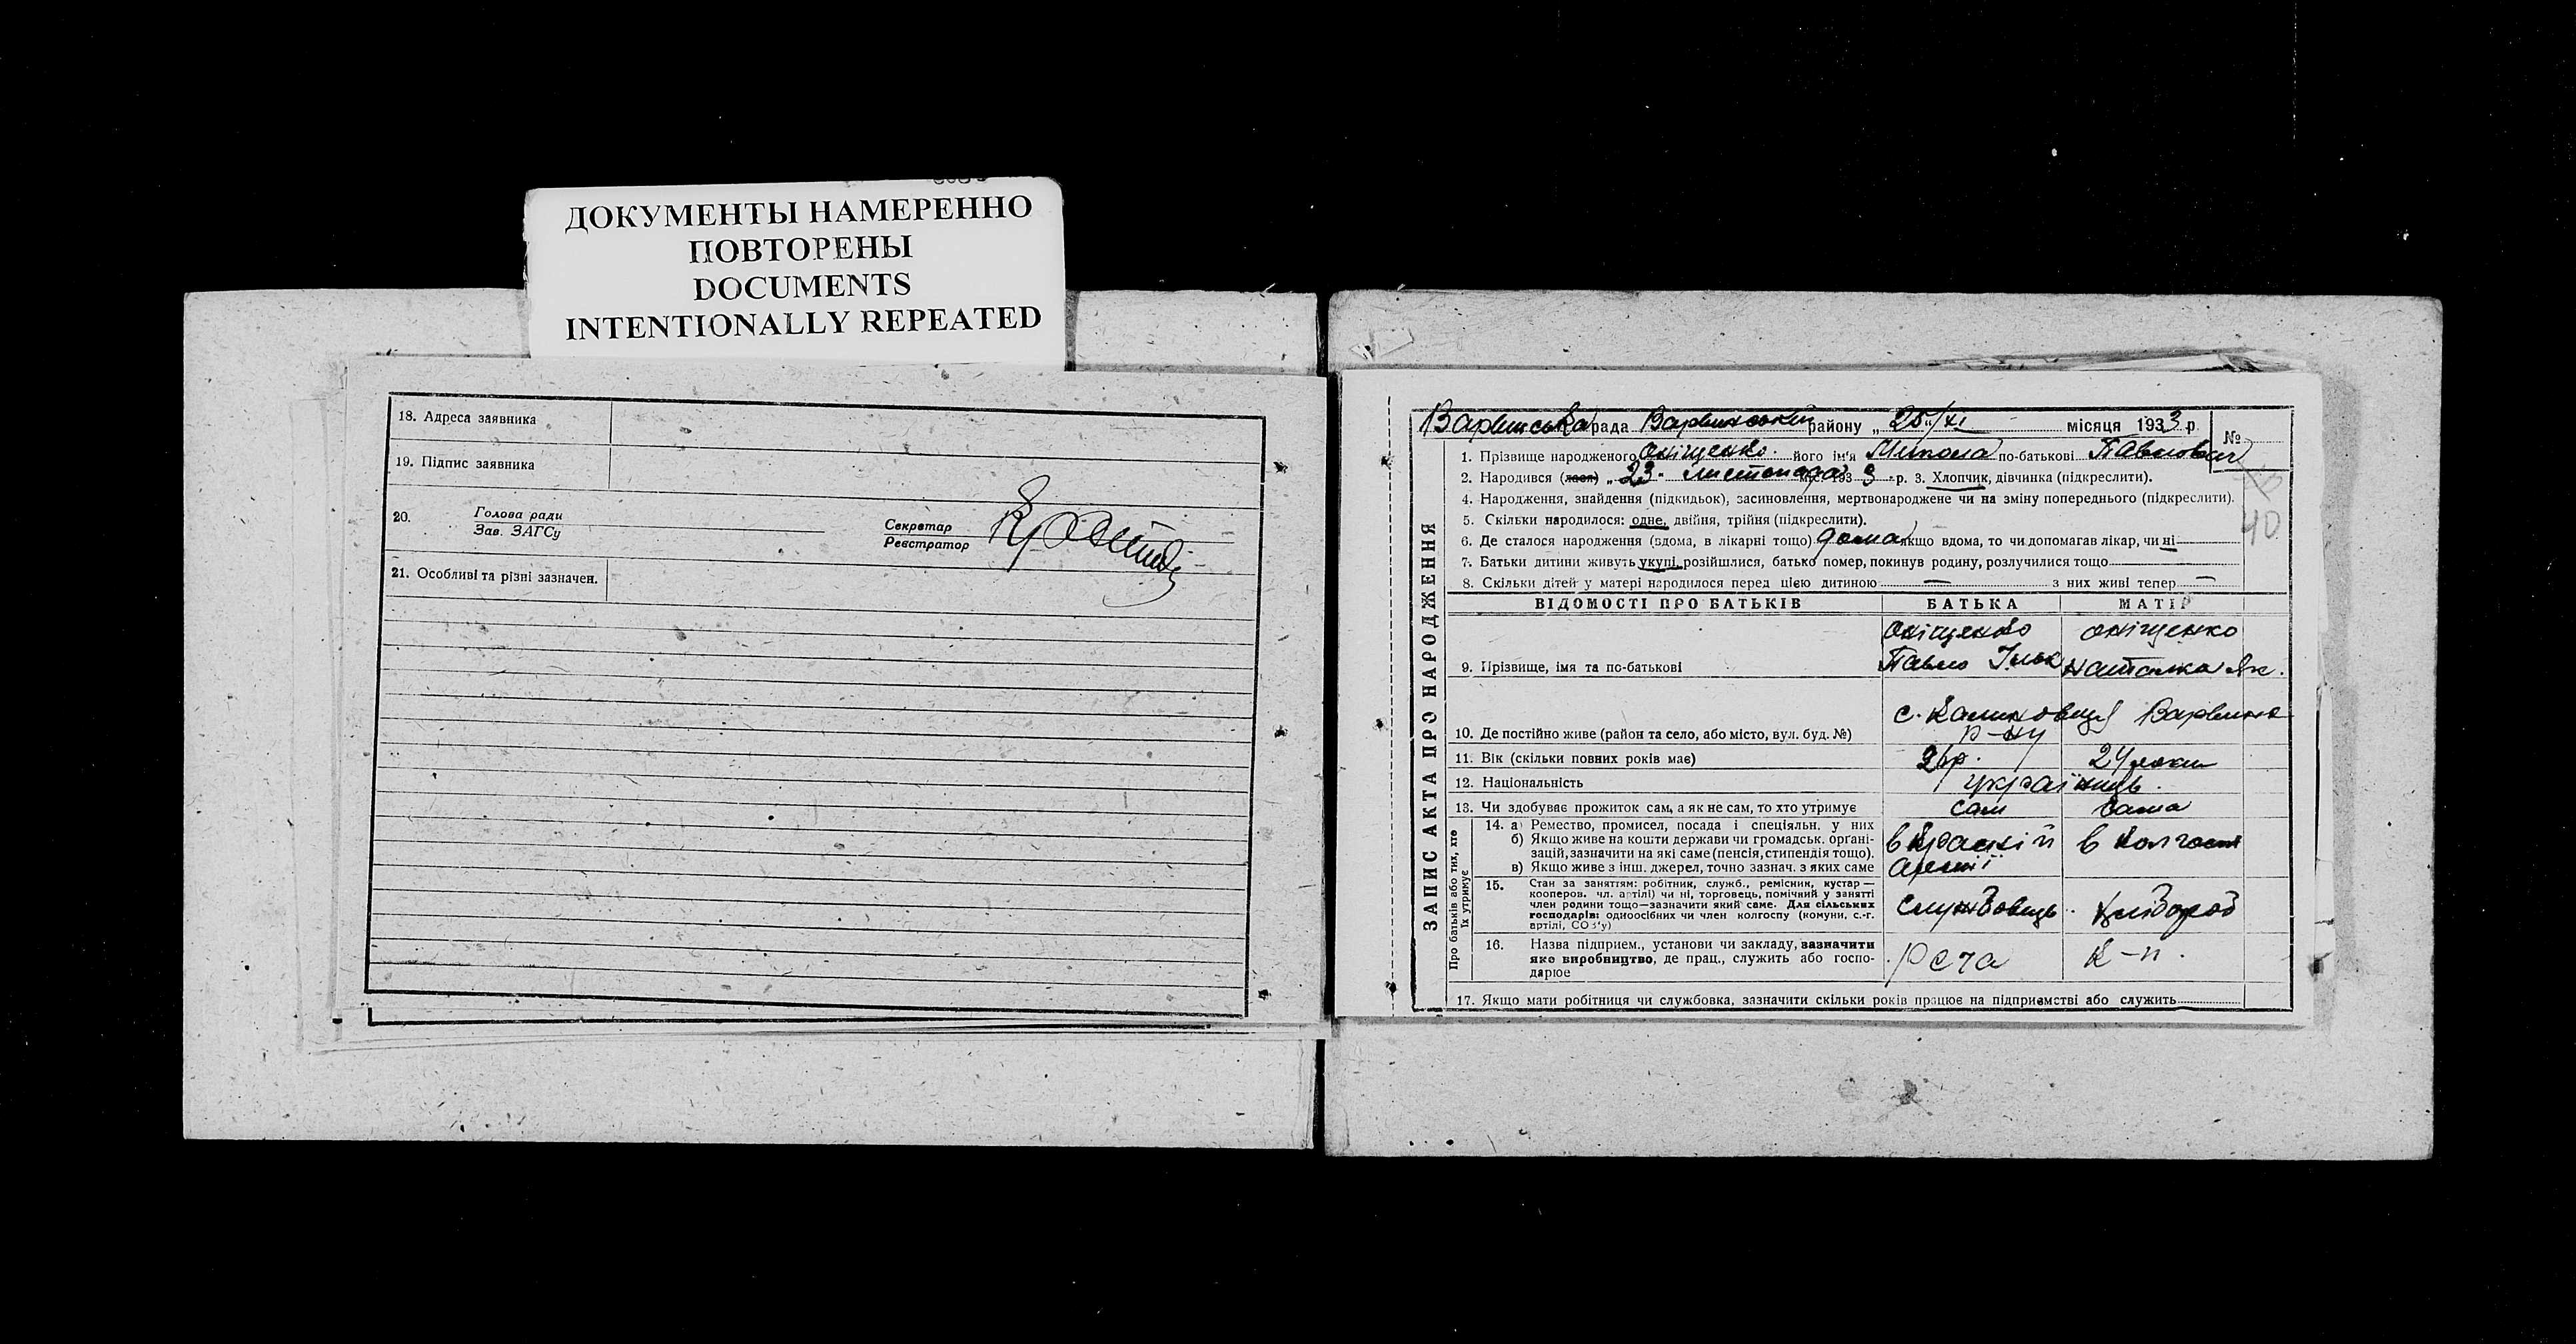 ДОКУМЕНТЫ НАМЕРЕННО
ПОВТОРЕНЫ
DOCUMENTS
INTENTIONALLY REPEATED
18. Адреса заявника
19. Підпис заявника
20. Голова ради
Зав. ЗАГСу
Секретар
Реєстратор
21. Особливі та різні зазначен.
ЗАПИС АКТА ПРО НАРОДЖЕННЯ
Варвинська рада Варвинський району „25"/XI місяця 1933 р. №
40
1. Прізвище народженого Оніщенко його ім'я Микола по-батькові Павлович
2. Народився (лася) „23" листопада 1933 р. 3. Хлопчик, дівчинка (підкреслити).
4. Народження, знайдення (підкидьок), засиновлення, мертвонароджене чи на зміну попереднього (підкреслити).
5. Скільки народилося: одне, двійня, трійня (підкреслити).
6. Де сталося народження (вдома, в лікарні тощо) дома якщо вдома, то чи допомагав лікар, чи ні
7. Батьки дитини живуть укупі, розійшлися, батько помер, покинув родину, розлучилися тощо
8. Скільки дітей у матері народилося перед цією дитиною — з них живі тепер —
ВІДОМОСТІ ПРО БАТЬКІВ БАТЬКА МАТІР
9. Прізвище, імя та по-батькові Оніщенко Павло Ільк Оніщенко Наталка Як.
10. Де постійно живе (район та село, або місто, вул. буд. №) с. Калиновиця Варвинс р-ну
11. Вік (скільки повних років має) 26р. 24 роки
12. Національність українць.
13. Чи здобуває прожиток сам, а як не сам, то хто утримує сам сама
Про батьків або тих, хто їх утримує
14. а) Ремество, промисел, посада і спеціяльн. у них
б) Якщо живе на кошти держави чи громадськ. органі-
зацій, зазначити на які саме (пенсія, стипендія тощо).
в) Якщо живе з інш. джерел, точно зазнач. з яких саме
в Красній армії в колгоспі
15. Стан за заняттям: робітник, служб., ремісник, кустар —
кооперов. чл. артілі) чи ні, торговець, помічний у занятті
член родини тощо—зазначити який саме. Для сільських
господарів: одноосібних чи член колгоспу (комуни, с.-г.
артілі, СОЗ'у)
службовець хлібороб
16. Назва підприєм., установи чи закладу, зазначити
яке виробництво, де прац., служить або госпо-
дарює
к-п.
17. Якщо мати робітниця чи службовка, зазначити скільки років працює на підприємстві або служить